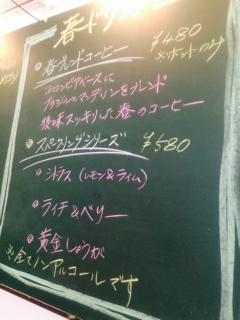 春ドリンク
❶春ブレンドコーヒー ¥480
※ホットのみ
コロンビアベースに
ブラジルとマンデリンをブレンド
後味スッキリした春のコーヒー
❷スパークリングシリーズ ¥580
シトラス(レモン&ライム)
ライチ&ベリー
黄金しょうが
※全てノンアルコールです